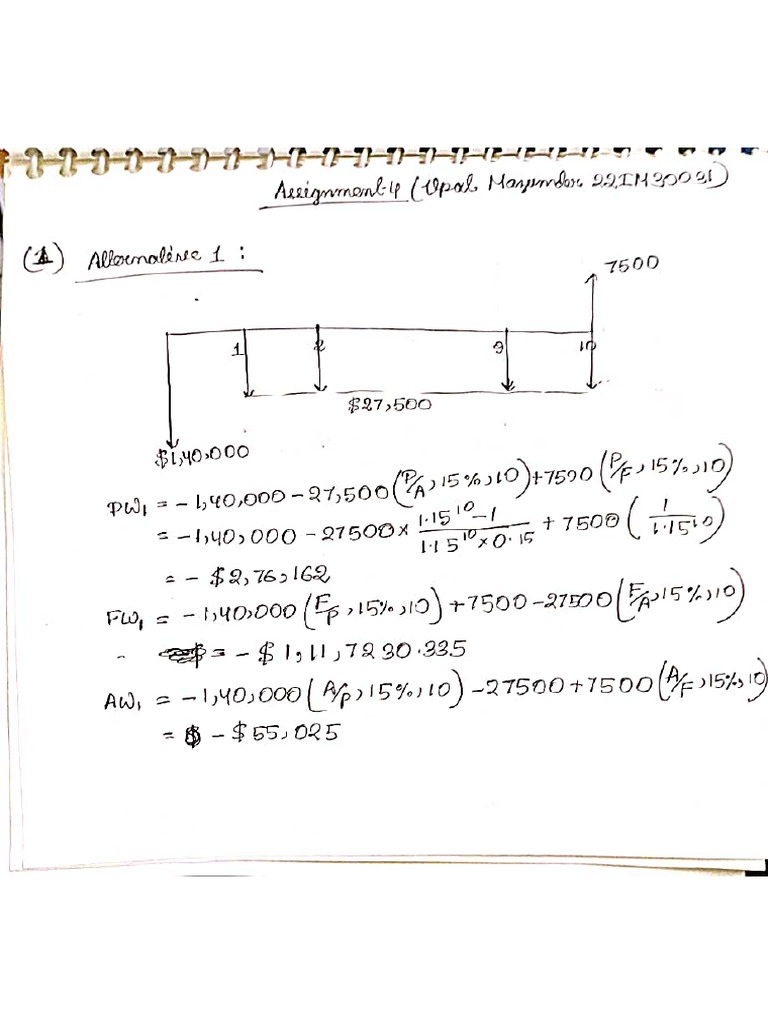 Assignment-4 (Upal Mazumdar 22IM30031)
(1) Alternative 1 :
7500
1 2 9 10
$27,500
$1,40,000
PW₁ = -1,40,000 - 27,500 (P/A, 15%, 10) + 7500 (P/F, 15%, 10)
= -1,40,000 - 27500 × (1.15^10 - 1)/(1.15^10 × 0.15) + 7500 (1/1.15^10)
= - $2,76,162
FW₁ = -1,40,000 (F/P, 15%, 10) + 7500 - 27500 (F/A, 15%, 10)
= - $ 1,11,7230.335
AW₁ = -1,40,000 (A/P, 15%, 10) - 27500 + 7500 (A/F, 15%, 10)
= - $55,025